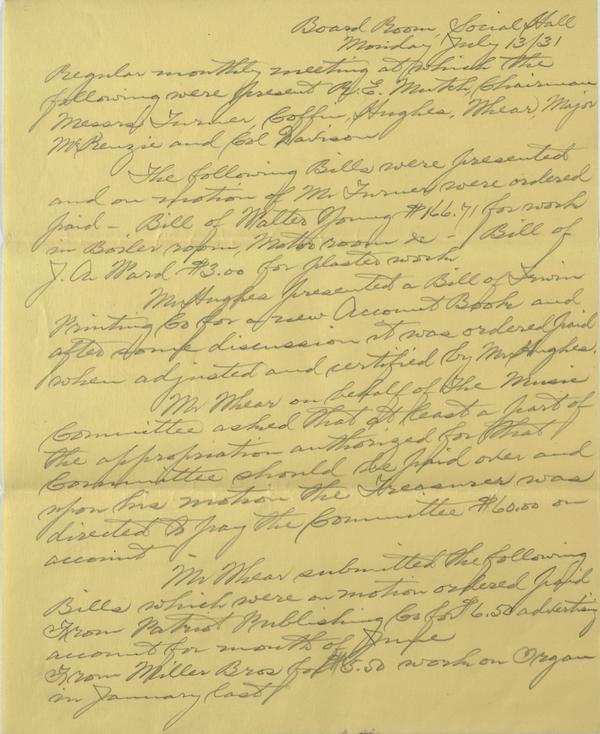 Board Room, Social Hall
Monday July 13/31
Regular monthly meeting at which the
following were present R. E. Mutch, Chairman
Messrs Turner, Coffin, Hughes, Whear, Major
McKenzie and Col Davison
The following Bills were presented
and on motion of Mr Turner were ordered
paid - Bill of Walter Young $166.71 for work
in Boiler room, Motor room &c - Bill of
J. A. Ward $3.00 for plaster work
Mr Hughes presented a Bill of Irwin
Printing Co for a new Account Book and
after some discussion it was ordered paid
when adjusted and certified by Mr Hughes.
Mr Whear on behalf of the Music
Committee asked that at least a part of
the appropriation authorized for that
Committee should be paid over and
upon his motion the Treasurer was
directed to pay the Committee $60.00 on
account -
Mr Whear submitted the following
Bills which were on motion ordered paid
From Patriot Publishing Co for $6.50 advertising
account for month of June
From Miller Bros for $5.50 work on Organ
in January last